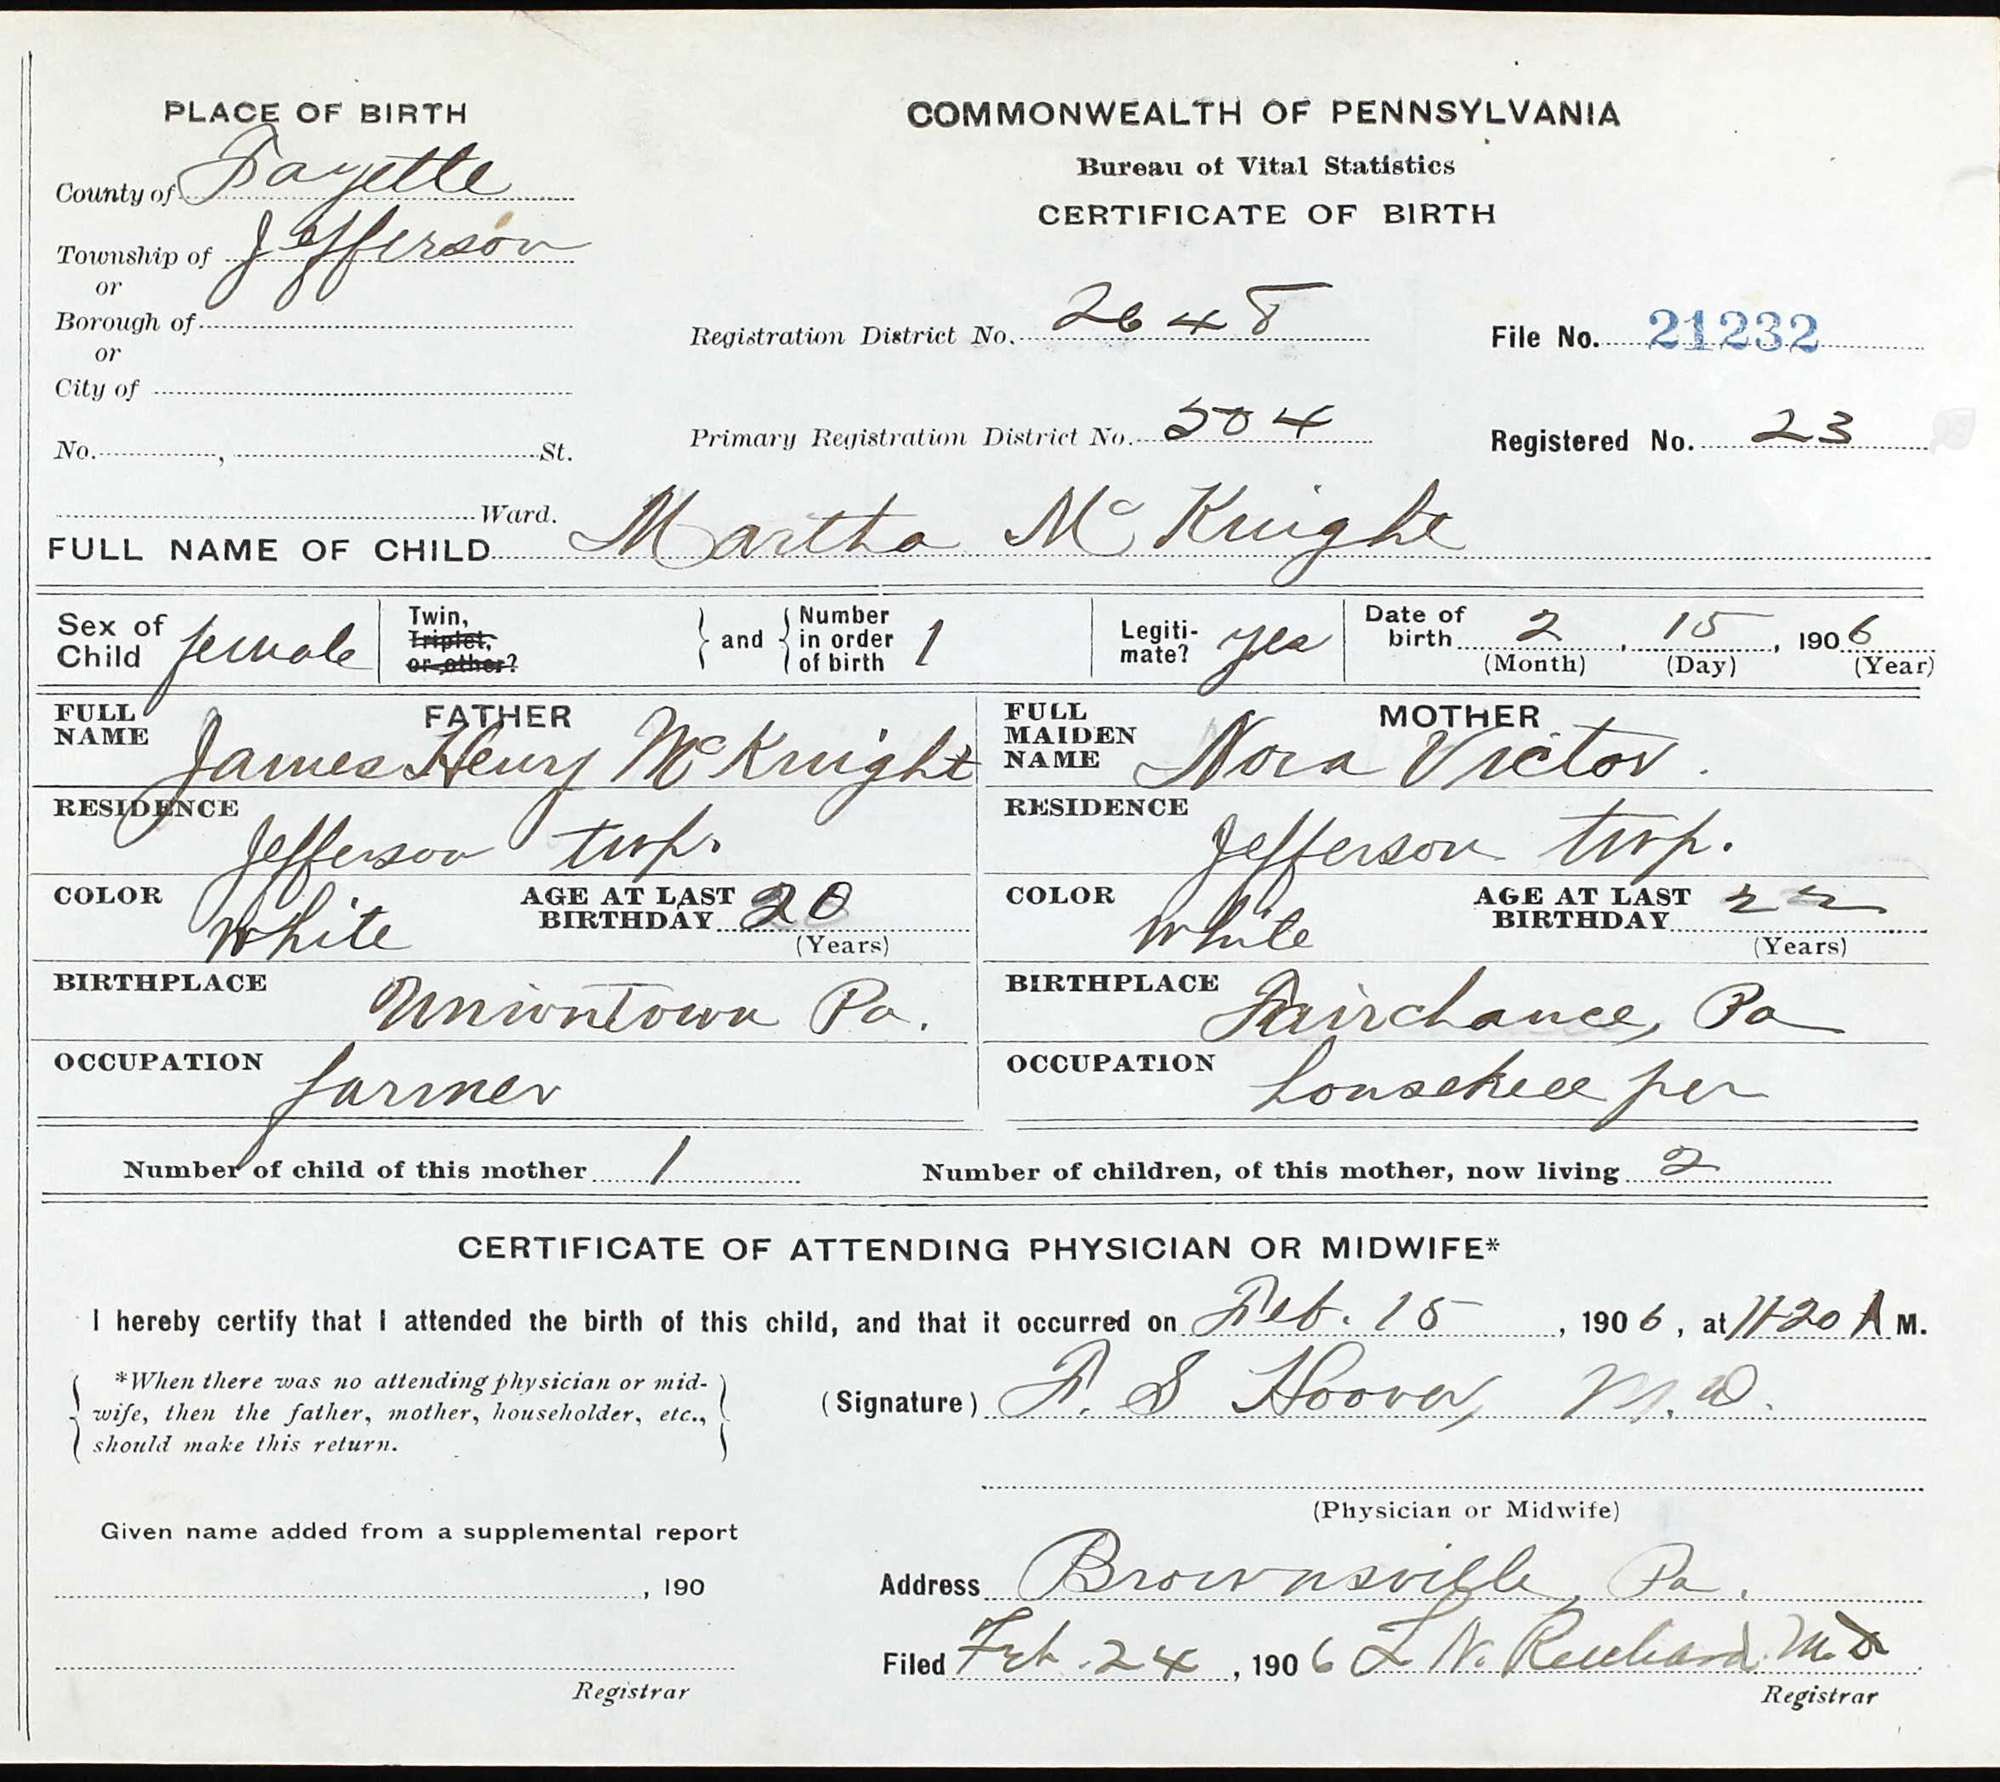 PLACE OF BIRTH
County of Fayette
Township of Jefferson
or
Borough of
or
City of
No. , St.
Ward.
COMMONWEALTH OF PENNSYLVANIA
Bureau of Vital Statistics
CERTIFICATE OF BIRTH
Registration District No. 2648
File No. 21232
Primary Registration District No. 504
Registered No. 23
FULL NAME OF CHILD Martha McKnight
Sex of Child female
Twin, Triplet, or other?
and
Number in order of birth 1
Legitimate? yes
Date of birth 2 , 15 , 1906
(Month) (Day) (Year)
FATHER
FULL NAME James Henry McKnight
RESIDENCE Jefferson twp.
COLOR White
AGE AT LAST BIRTHDAY 20
(Years)
BIRTHPLACE Uniontown Pa.
OCCUPATION farmer
MOTHER
FULL MAIDEN NAME Nora Victor.
RESIDENCE Jefferson twp.
COLOR White
AGE AT LAST BIRTHDAY 22
(Years)
BIRTHPLACE Fairchance, Pa
OCCUPATION housekeeper
Number of child of this mother 1
Number of children, of this mother, now living 2
CERTIFICATE OF ATTENDING PHYSICIAN OR MIDWIFE*
I hereby certify that I attended the birth of this child, and that it occurred on Feb. 15 , 1906, at 11-20 A M.
*When there was no attending physician or mid-
wife, then the father, mother, householder, etc.,
should make this return.
(Signature) F. S Hoover, M.D.
(Physician or Midwife)
Given name added from a supplemental report
, 190
Registrar
Address Brownsville, Pa.
Filed Feb. 24 , 1906 L N. Reichard M.D
Registrar